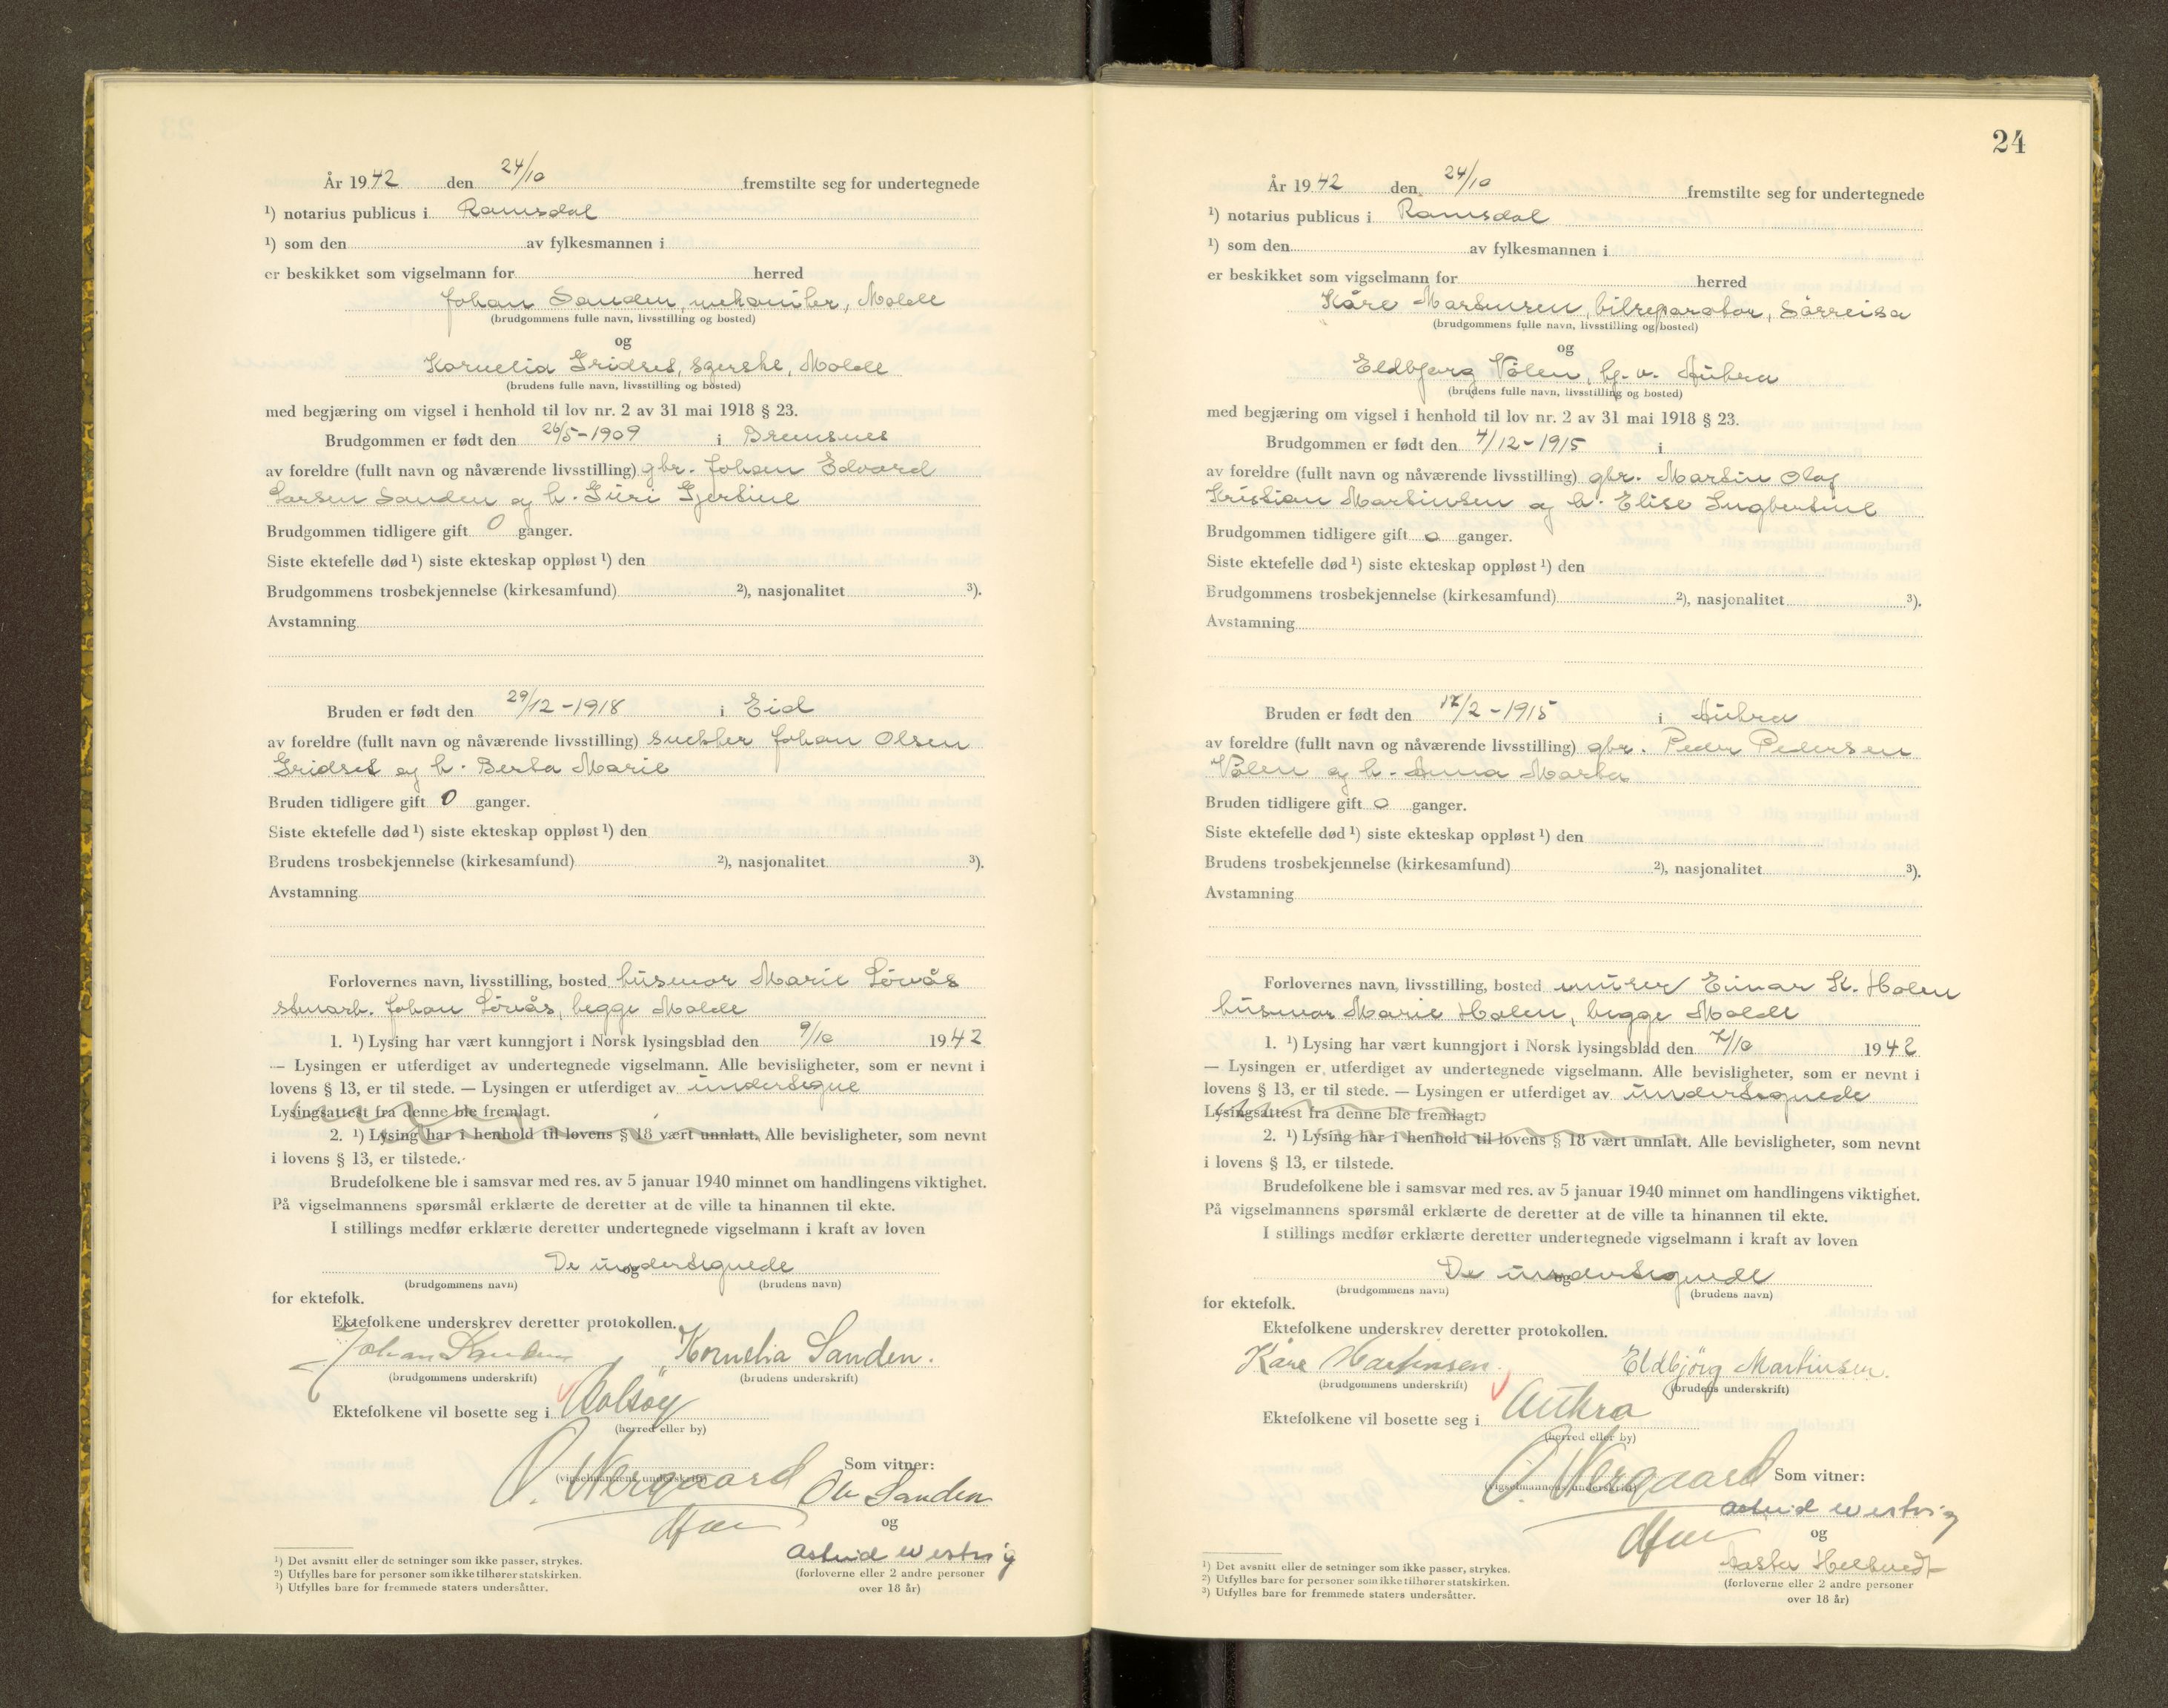 År 1942 den 24/10 fremstilte seg for undertegnede
¹) notarius publicus i Romsdal
¹) som den av fylkesmannen i
er beskikket som vigselmann for herred
Johan Sanden, mekaniker, Molde
(brudgommens fulle navn, livsstilling og bosted)
og
Kornelia Gridset, syerske, Molde
(brudens fulle navn, livsstilling og bosted)
med begjæring om vigsel i henhold til lov nr. 2 av 31 mai 1918 § 23.
Brudgommen er født den 26/5-1909 i Bremsnes
av foreldre (fullt navn og nåværende livsstilling) gbr. Johan Edvard
Larsen Sanden og h. Guri Gjertine
Brudgommen tidligere gift 0 ganger.
Siste ektefelle død ¹) siste ekteskap oppløst ¹) den
Brudgommens trosbekjennelse (kirkesamfund) ²), nasjonalitet ³).
Avstamning
Bruden er født den 29/12-1918 i Eid
av foreldre (fullt navn og nåværende livsstilling) snekker Johan Olsen
Gridset og h. Berta Marie
Bruden tidligere gift 0 ganger.
Siste ektefelle død ¹) siste ekteskap oppløst ¹) den
Brudens trosbekjennelse (kirkesamfund) ²), nasjonalitet ³).
Avstamning
Forlovernes navn, livsstilling, bosted husmor Marie Lønås
stenarb. Johan Lønås, begge Molde
1. ¹) Lysing har vært kunngjort i Norsk lysingsblad den 9/10 1942
— Lysingen er utferdiget av undertegnede vigselmann. Alle bevisligheter, som er nevnt i
lovens § 13, er til stede. — Lysingen er utferdiget av undertegne
Lysingsattest fra denne ble fremlagt.
2. ¹) Lysing har i henhold til lovens § 18 vært unnlatt. Alle bevisligheter, som nevnt
i lovens § 13, er tilstede.
Brudefolkene ble i samsvar med res. av 5 januar 1940 minnet om handlingens viktighet.
På vigselmannens spørsmål erklærte de deretter at de ville ta hinannen til ekte.
I stillings medfør erklærte deretter undertegnede vigselmann i kraft av loven
De undertegnede
og
(brudgommens navn) (brudens navn)
for ektefolk.
Ektefolkene underskrev deretter protokollen.
Johan Sanden Kornelia Sanden.
(brudgommens underskrift) (brudens underskrift)
Ektefolkene vil bosette seg i Bolsøy
(herred eller by)
O. Wergaard Som vitner:
(vigselmannens underskrift)
Ola Sanden
og
Astrid Westvig
(forloverne eller 2 andre personer
over 18 år)
¹) Det avsnitt eller de setninger som ikke passer, strykes.
²) Utfylles bare for personer som ikke tilhører statskirken.
³) Utfylles bare for fremmede staters undersåtter.
24
År 1942 den 24/10 fremstilte seg for undertegnede
¹) notarius publicus i Romsdal
¹) som den av fylkesmannen i
er beskikket som vigselmann for herred
Kåre Martinsen, bilreparatør, Sørreisa
(brudgommens fulle navn, livsstilling og bosted)
og
Eldbjørg Vålen, hj. v. Aukra
(brudens fulle navn, livsstilling og bosted)
med begjæring om vigsel i henhold til lov nr. 2 av 31 mai 1918 § 23.
Brudgommen er født den 4/12-1915 i
av foreldre (fullt navn og nåværende livsstilling) gbr. Martin Olaf
Kristian Martinsen og h. Elise Ingbertine
Brudgommen tidligere gift 0 ganger.
Siste ektefelle død ¹) siste ekteskap oppløst ¹) den
Brudgommens trosbekjennelse (kirkesamfund) ²), nasjonalitet ³).
Avstamning
Bruden er født den 17/2-1915 i Aukra
av foreldre (fullt navn og nåværende livsstilling) gbr. Peder Pedersen
Vålen og h. Anna Marta
Bruden tidligere gift 0 ganger.
Siste ektefelle død ¹) siste ekteskap oppløst ¹) den
Brudens trosbekjennelse (kirkesamfund) ²), nasjonalitet ³).
Avstamning
Forlovernes navn, livsstilling, bosted murer Einar K. Holen
husmor Marie Holen, begge Molde
1. ¹) Lysing har vært kunngjort i Norsk lysingsblad den 7/10 1942
— Lysingen er utferdiget av undertegnede vigselmann. Alle bevisligheter, som er nevnt i
lovens § 13, er til stede. — Lysingen er utferdiget av undertegnede
Lysingsattest fra denne ble fremlagt.
2. ¹) Lysing har i henhold til lovens § 18 vært unnlatt. Alle bevisligheter, som nevnt
i lovens § 13, er tilstede.
Brudefolkene ble i samsvar med res. av 5 januar 1940 minnet om handlingens viktighet.
På vigselmannens spørsmål erklærte de deretter at de ville ta hinannen til ekte.
I stillings medfør erklærte deretter undertegnede vigselmann i kraft av loven
De undertegnede
og
(brudgommens navn) (brudens navn)
for ektefolk.
Ektefolkene underskrev deretter protokollen.
Kåre Martinsen. Eldbjörg Martinsen.
(brudgommens underskrift) (brudens underskrift)
Ektefolkene vil bosette seg i Aukra
(herred eller by)
O. Wergaard Som vitner:
(vigselmannens underskrift)
Astrid Westvig
og
(forloverne eller 2 andre personer
over 18 år)
¹) Det avsnitt eller de setninger som ikke passer, strykes.
²) Utfylles bare for personer som ikke tilhører statskirken.
³) Utfylles bare for fremmede staters undersåtter.